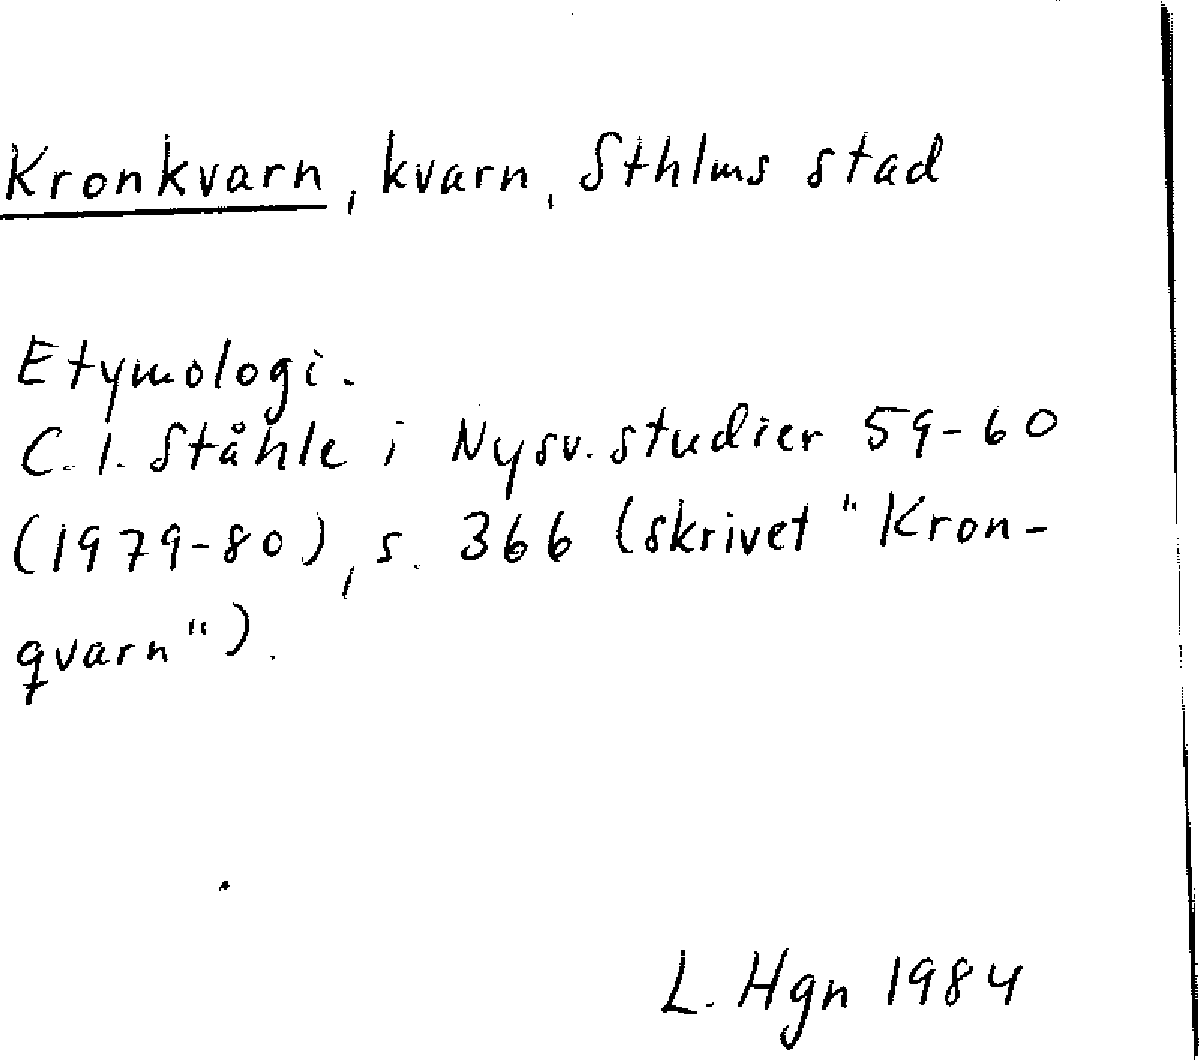 Kronkvarn, kvarn, Sthlms stad
Etymologi.
C. I. Ståhle i Nysv. studier 59-60
(1979-80), s. 366 (skrivet "Kron-
qvarn").
L. Hgn 1984